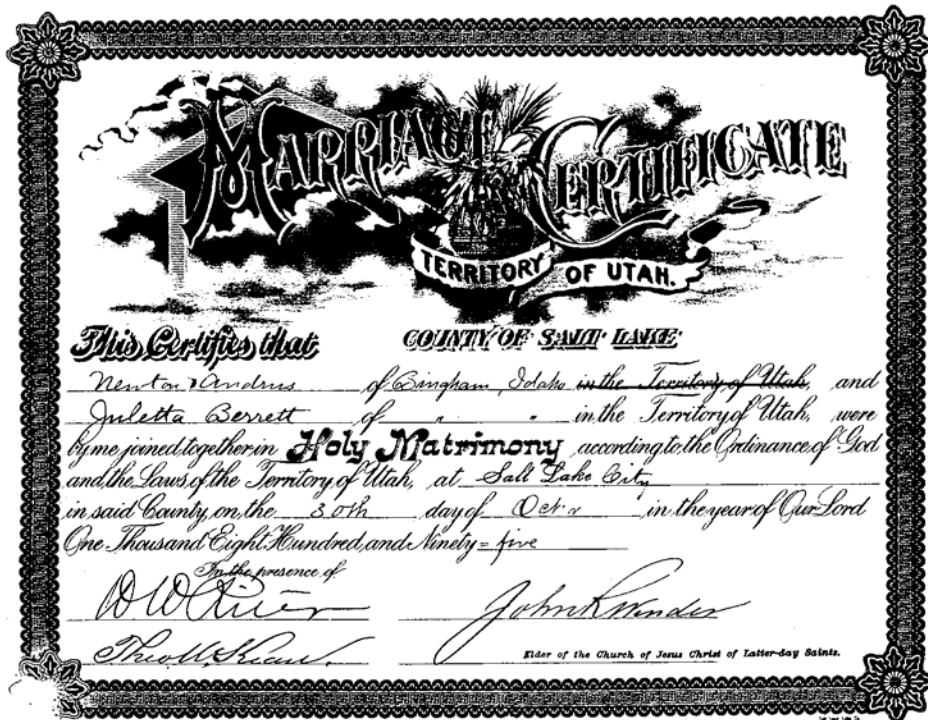 MARRIAGE CERTIFICATE
TERRITORY OF UTAH.
This Certifies that COUNTY OF SALT LAKE
Newton Andrus of Bingham, Idaho in the Territory of Utah, and
Juletta Berrett of " " in the Territory of Utah, were
by me joined together in Holy Matrimony according to the Ordinance of God
and the Laws of the Territory of Utah, at Salt Lake City
in said County, on the 30th day of Oct. in the year of Our Lord
One Thousand Eight Hundred and Ninety-five
In the presence of
John R Winder
Elder of the Church of Jesus Christ of Latter-day Saints.